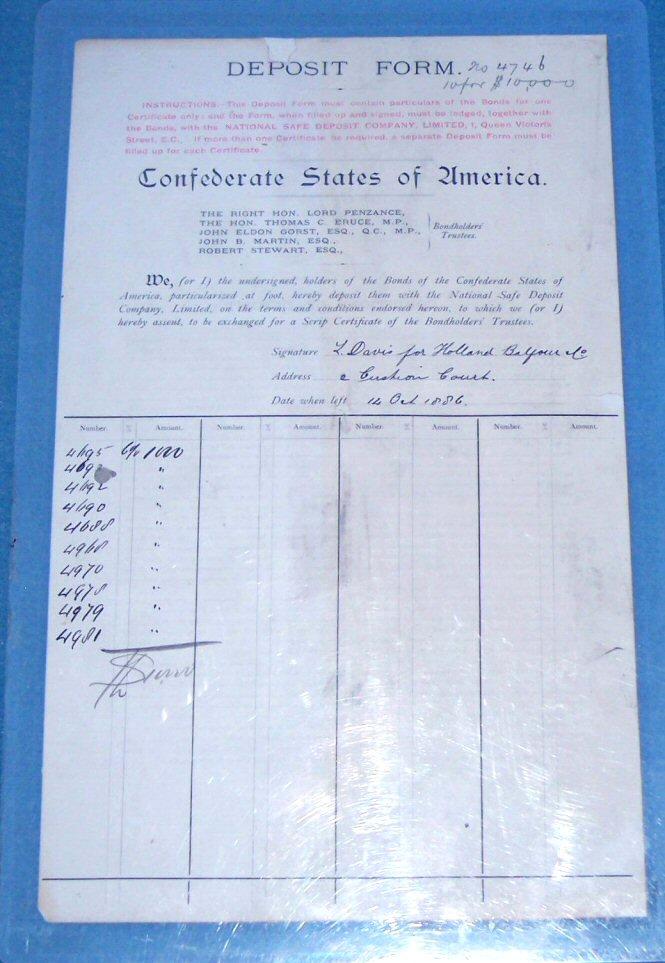 DEPOSIT FORM. No 4746
10 for $10,000
INSTRUCTIONS. This Deposit Form must contain particulars of the Bonds for one
Certificate only; and the Form, when filled up and signed, must be lodged, together with
the Bonds, with the NATIONAL SAFE DEPOSIT COMPANY, LIMITED, 1, Queen Victoria
Street, E.C. If more than one Certificate be required, a separate Deposit Form must be
filled up for each Certificate.
Confederate States of America.
THE RIGHT HON. LORD PENZANCE,
THE HON. THOMAS C. BRUCE, M.P.,
JOHN ELDON GORST, ESQ., Q.C., M.P.,
JOHN B. MARTIN, ESQ.,
ROBERT STEWART, ESQ.,
Bondholders'
Trustees.
We, (or I) the undersigned, holders of the Bonds of the Confederate States of
America, particularised at foot, hereby deposit them with the National Safe Deposit
Company, Limited, on the terms and conditions endorsed hereon, to which we (or I)
hereby assent, to be exchanged for a Scrip Certificate of the Bondholders' Trustees.
Signature L. Davis for Holland Balfour & Co
Address 2 Cushion Court.
Date when left 14 Oct 1886.
Number. % Amount. Number. % Amount. Number. % Amount. Number. % Amount.
4695 6% 1000
469 "
4692 "
4690 "
4688 "
4968 "
4970 "
4978 "
4979 "
4981 "